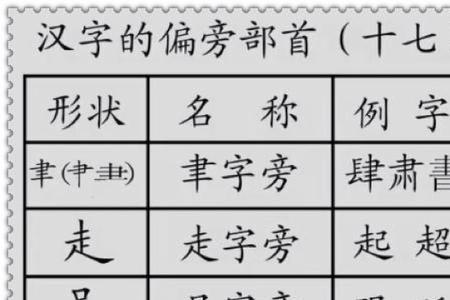 汉字的偏旁部首（十七
形状 名称 例字
聿(肀⺻) 聿字旁 肆肃書
走 走字旁 起超
字旁